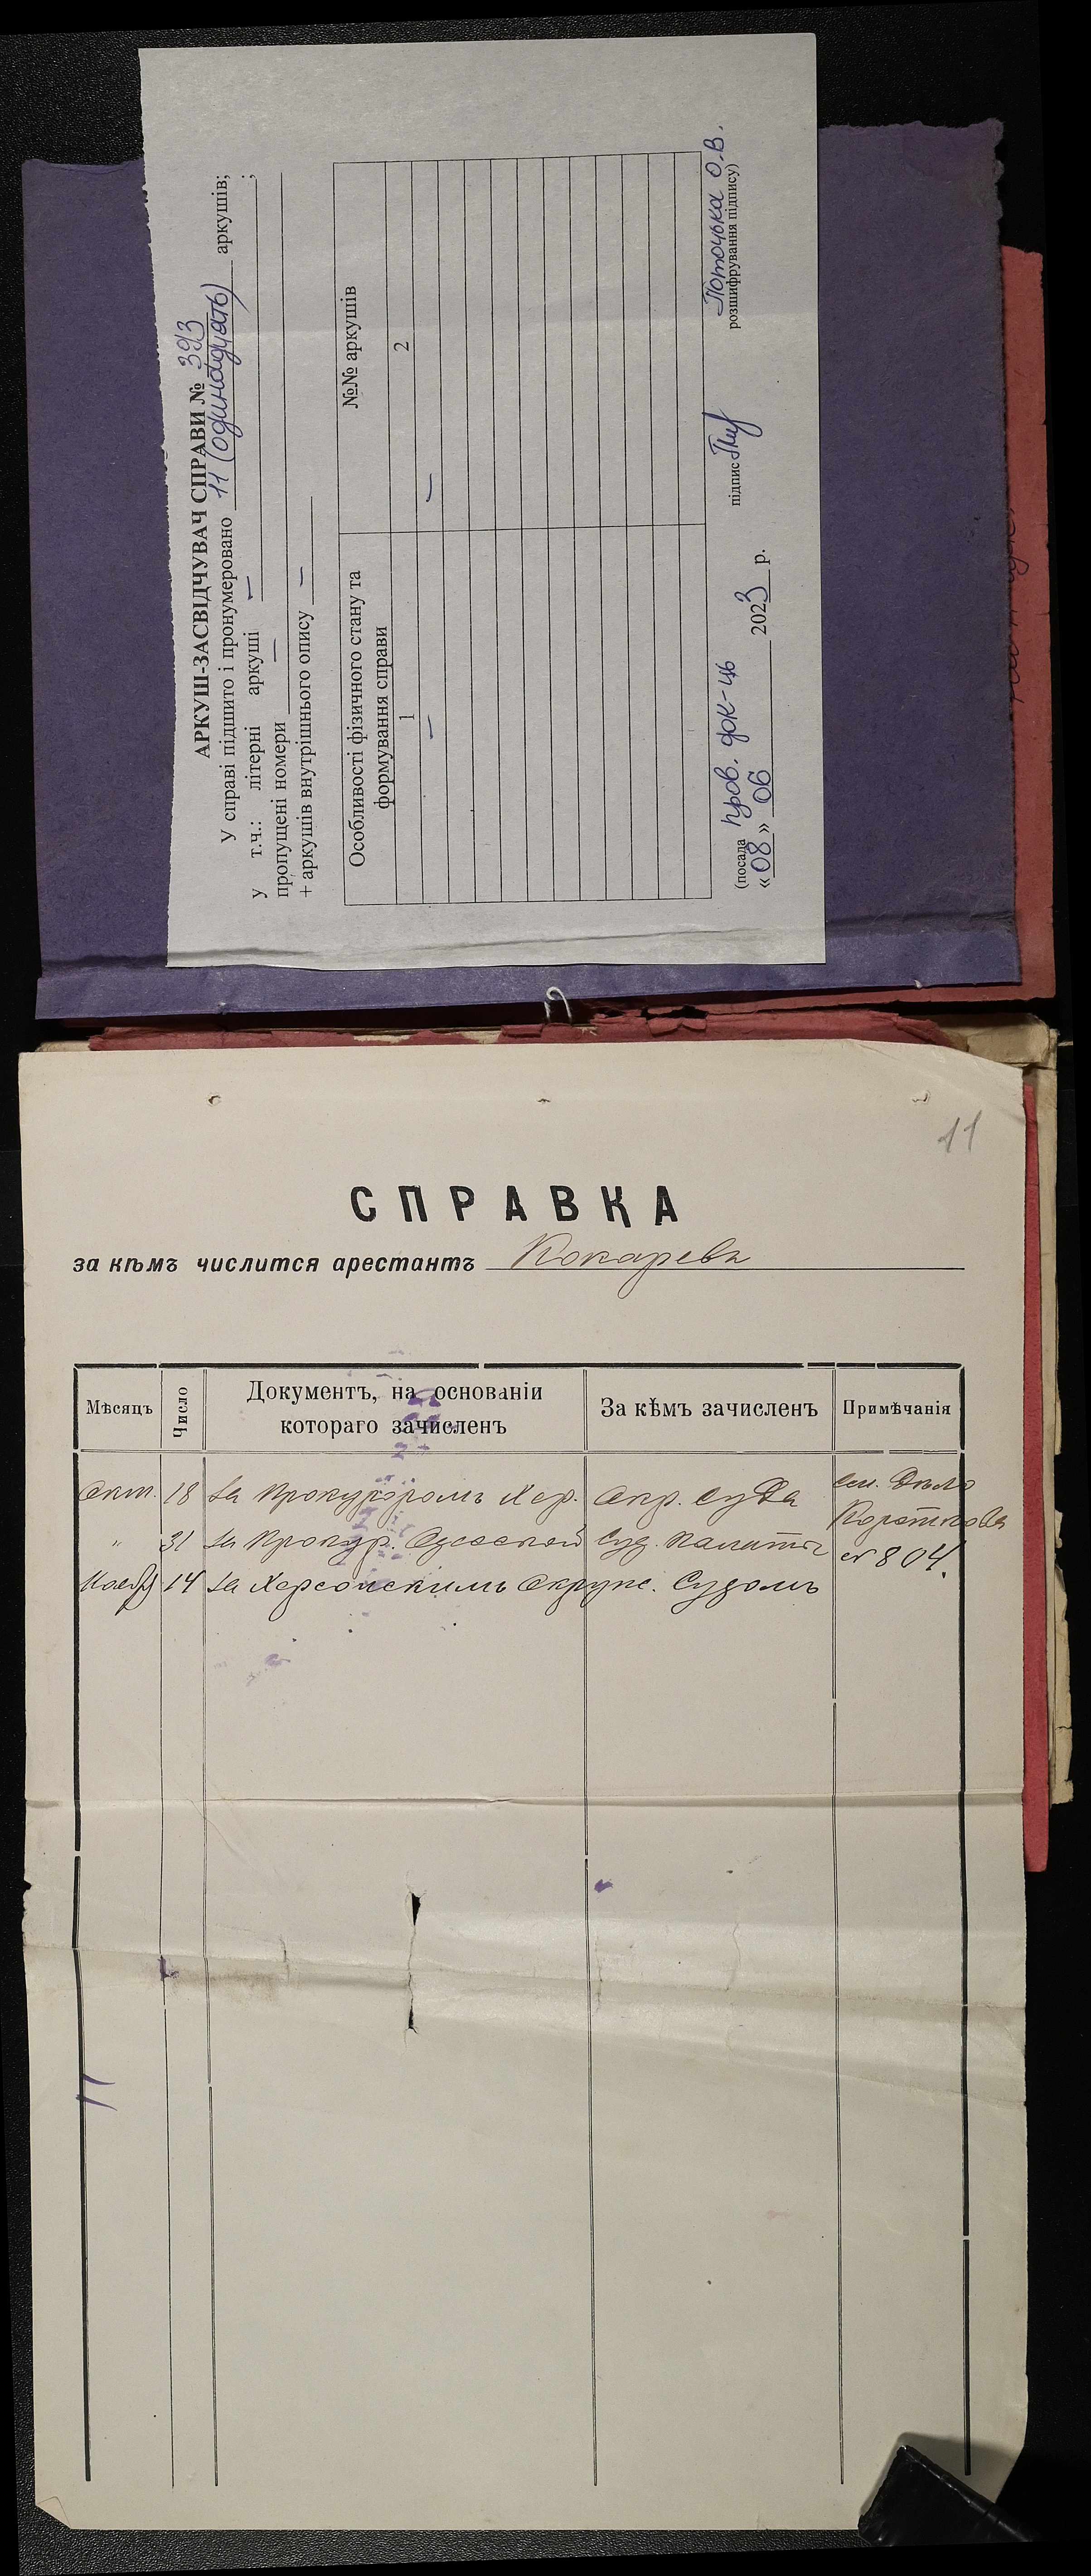 АРКУШ-ЗАСВІДЧУВАЧ СПРАВИ № 393
У справі підшито і пронумеровано 11 (одинадцять) аркушів;
у т.ч.: літерні аркуші — ;
пропущені номери —
+ аркушів внутрішнього опису —
Особливості фізичного стану та формування справи
№№ аркушів
1
2
—
—
(посада пров. док-ць
підпис
Поточька О.В.
розшифрування підпису)
«08» 06 2023 р.
11
СПРАВКА
за кѣмъ числится арестантъ Кокаревъ
Мѣсяцъ
Число
Документъ, на основаніи
котораго зачисленъ
За кѣмъ зачисленъ
Примѣчанія
Окт. 18 За Прокуроромъ Хер. Окр. Суда
см. Дѣло
Короткова
№ 804.
" 31 За Прокур. Одесской Суд. Палаты
Нояб 14 За Херсонскимъ Окруж. Судомъ
11